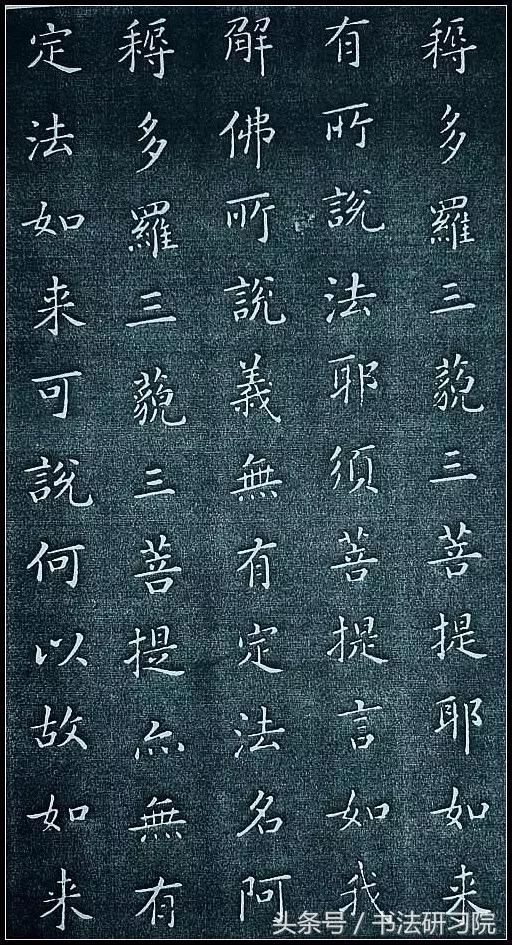 耨多羅三藐三菩提耶如来
有所說法耶須菩提言如我
解佛所說義無有定法名阿
耨多羅三藐三菩提亦無有
定法如来可說何以故如来
头条号/书法研习院